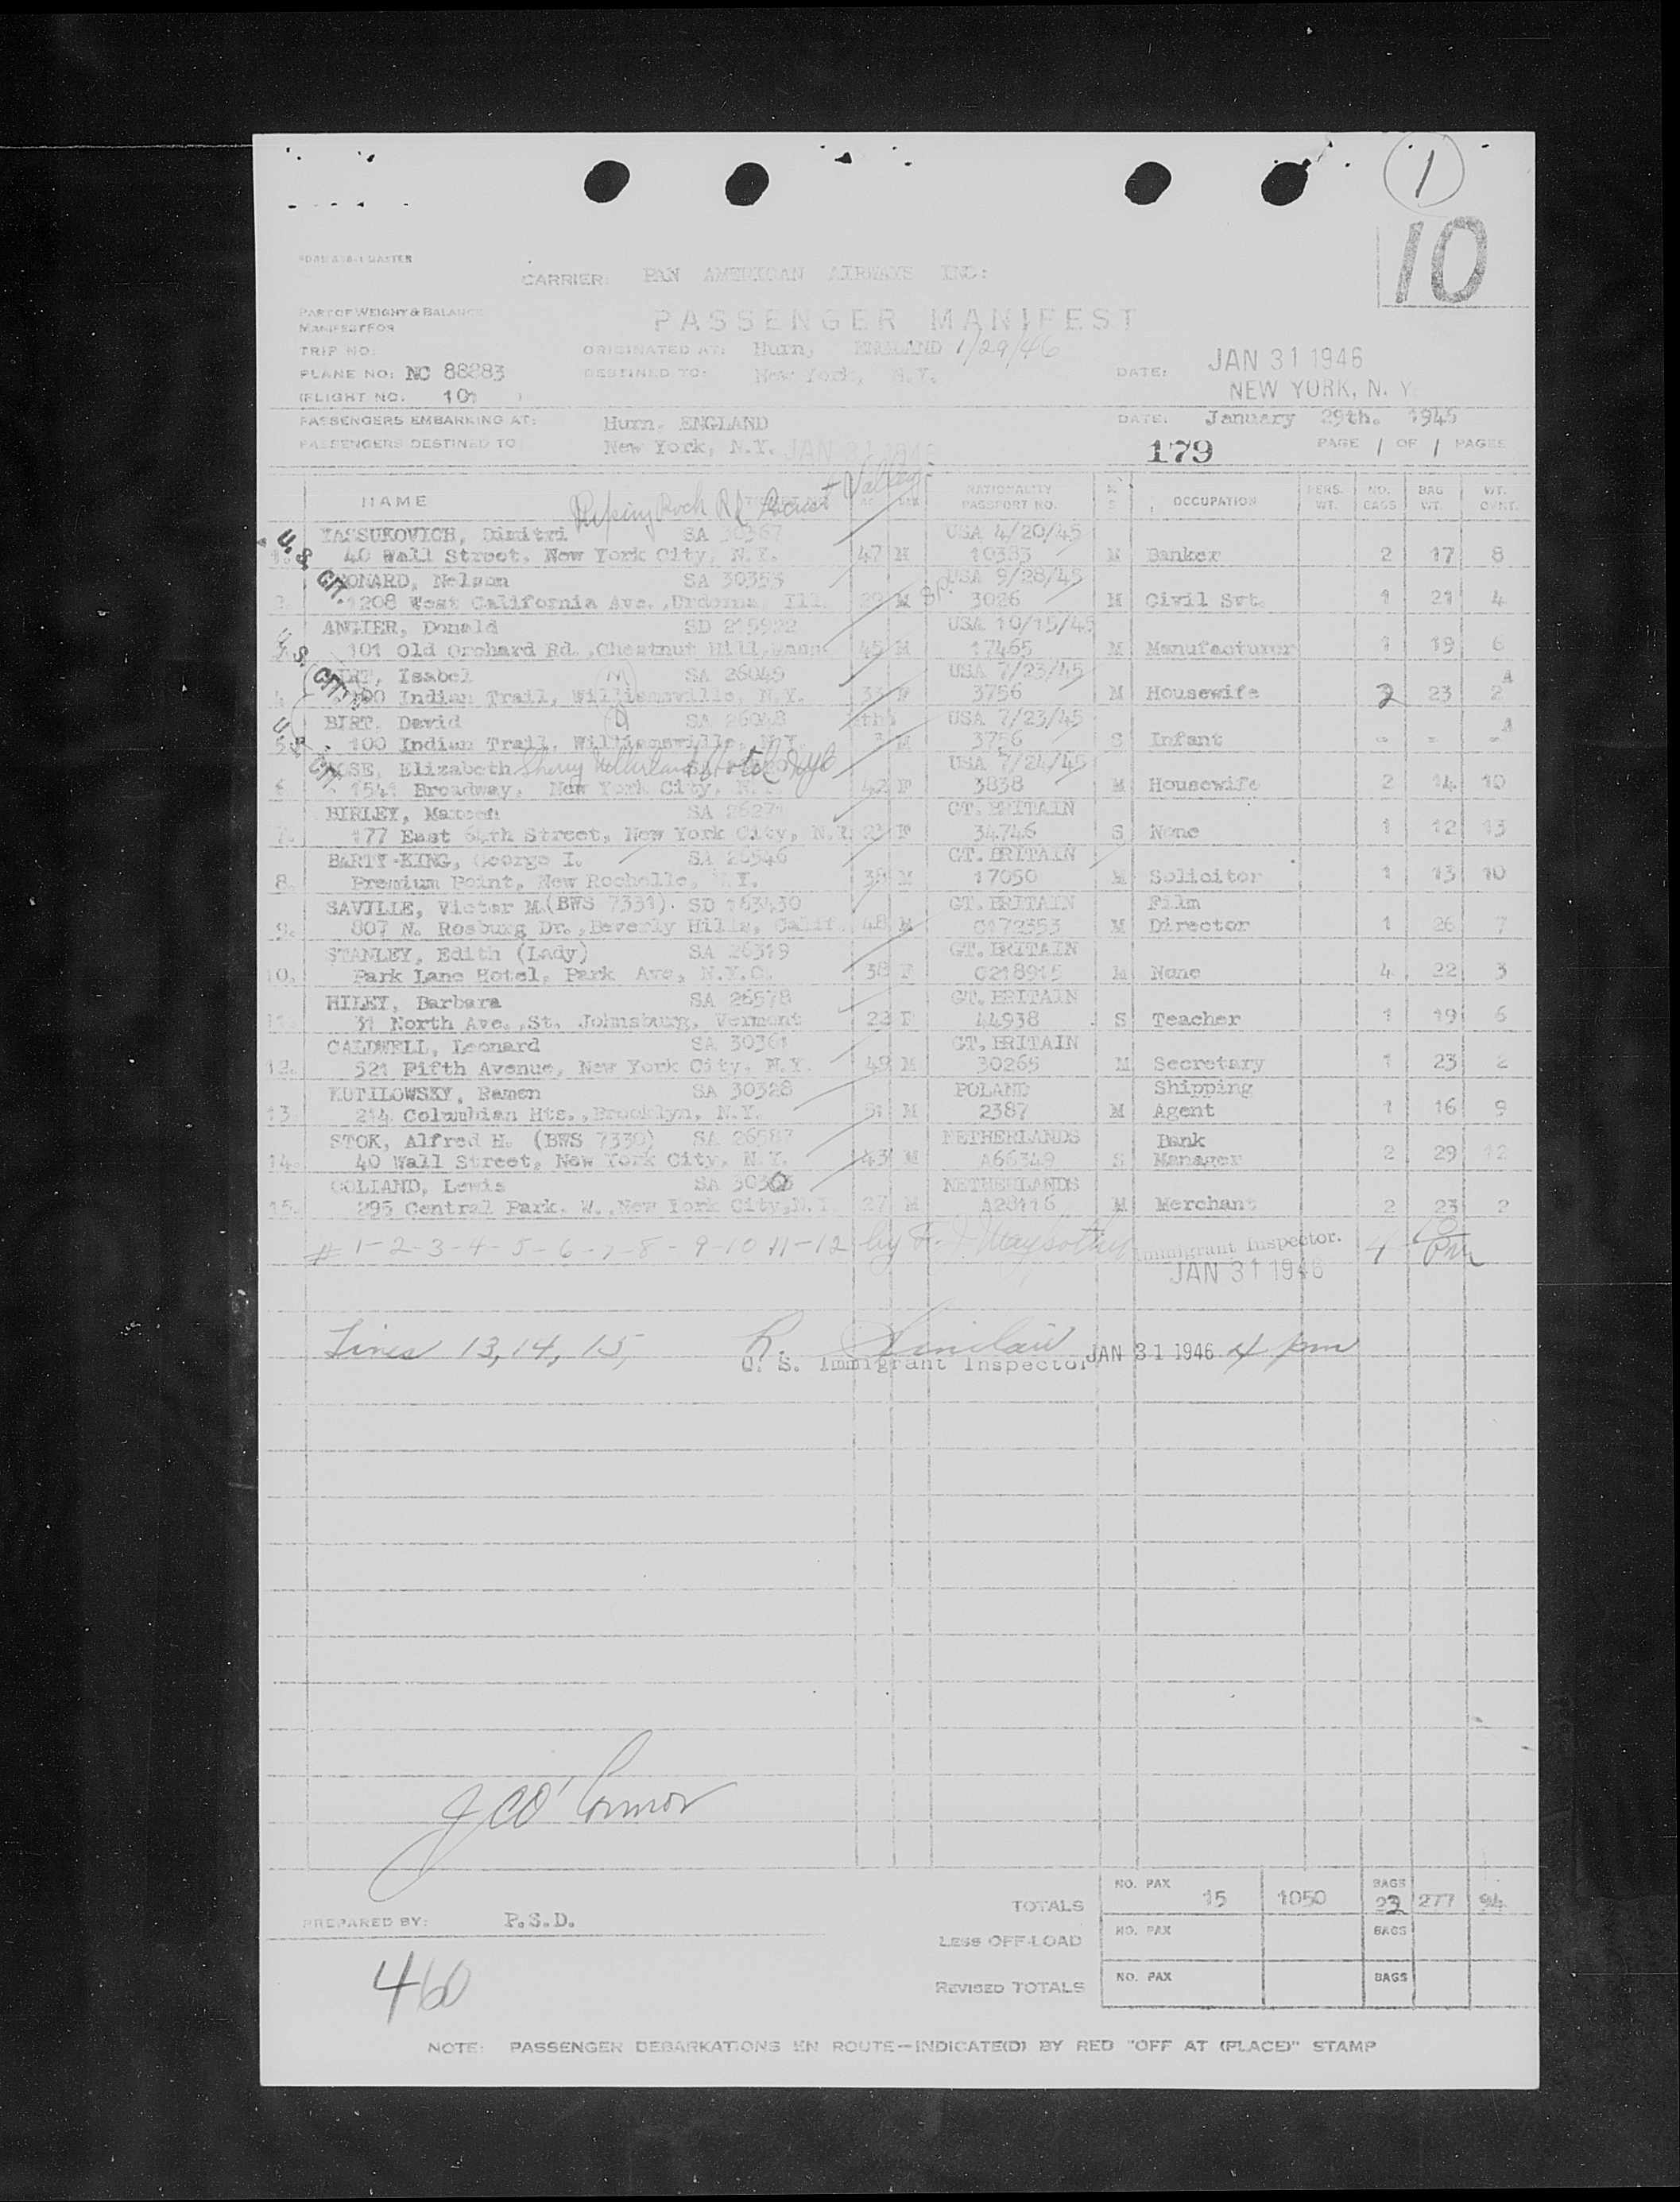 1
10
CARRIER: PAN AMERICAN AIRWAYS INC:
PART OF WEIGHT & BALANCE
MANIFEST FOR
PASSENGER MANIFEST
TRIP NO:
ORIGINATED AT: Hurn, ENGLAND 1/29/46
PLANE NO: NC 88883
DESTINED TO: New York, N.Y.
DATE: JAN 31 1946
NEW YORK, N.Y.
(FLIGHT NO. 101 )
PASSENGERS EMBARKING AT: Hurn, ENGLAND
DATE: January 29th. 1946
PASSENGERS DESTINED TO New York, N.Y. JAN 31 1946
179 PAGE 1 OF 1 PAGES
NAME NATIONALITY PASSPORT NO. M S OCCUPATION PERS. WT. NO. BAGS BAG WT. WT. CONT.
Rock Rd Locust Valley
U.S. CIT.
YASSUKOVICH, Dimitri SA 30367 USA 4/20/45
1. 40 Wall Street, New York City, N.Y. 47 M 10383 M Banker 2 17 8
Nelson SA 30353 USA 9/28/45
2. 1208 West California Ave., Ill. M 3026 M Civil Svt. 1 21 4
Donald USA 10/15/45
101 Old Orchard Rd., Chestnut Hill, Mass 45 M 17465 M Manufacturer 1 19 6
U.S. CIT.
Isabel SA 26049 USA 7/23/45
4. 100 Indian Trail, Williamsville, N.Y. 33 F 3756 M Housewife 2 23 2
BIRT, David SA 26048 USA 7/23/45
5. 100 Indian Trail, Williamsville, N.Y. M 3756 S Infant - - -
U.S. CIT.
Elizabeth Hotel USA 7/24/45
6. 1541 Broadway, New York City, N.Y. 42 F 3838 M Housewife 2 14 10
BIRLEY, SA 26271 GT. BRITAIN
7. 177 East 64th Street, New York City, N.Y. 23 F 34746 S None 1 12 13
BARTY-KING, George I. SA 26546 GT. BRITAIN
8. Premium Point, New Rochelle, N.Y. 38 M 17050 M Solicitor 1 13 10
SAVILLE, Victor M.(BWS 7331). SD 163430 GT. BRITAIN Film
9. 807 N. Rosburg Dr., Beverly Hills, Calif. 48 M C172353 M Director 1 26 7
STANLEY, Edith (Lady) SA 26319 GT. BRITAIN
10. Park Lane Hotel, Park Ave, N.Y.C. 38 F C218915 M None 4 22 3
HILEY, Barbara SA 26578 GT. BRITAIN
11. 31 North Ave., St. Johnsburg, Vermont 22 F 44938 S Teacher 1 19 6
CALDWELL, Leonard SA 30361 GT. BRITAIN
12. 521 Fifth Avenue, New York City, N.Y. 49 M 30265 M Secretary 1 23 2
KUTILOWSKY, Ramon SA 30328 POLAND Shipping
13. 214 Columbian Hts., Brooklyn, N.Y. 51 M 2387 M Agent 1 16 9
STOK, Alfred H. (BWS 7330) SA 26587 NETHERLANDS Bank
14. 40 Wall Street, New York City, N.Y. 43 M A66349 S Manager 2 29 12
GOLIAND, Lewis NETHERLANDS
15. 295 Central Park. W., New York City, N.Y. 27 M A28116 M Merchant 2 23 2
# 1-2-3-4-5-6-7-8-9-10 11-12 by Immigrant Inspector. 4 Pm
JAN 31 1946
Lines 13, 14, 15, R. Sinclair
U. S. Immigrant Inspector JAN 31 1946 4 pm
J C O'Connor
TOTALS NO. PAX 15 1050 BAGS 23 277 94
PREPARED BY: P.S.D.
LESS OFF-LOAD NO. PAX BAGS
REVISED TOTALS NO. PAX BAGS
460
NOTE: PASSENGER DEBARKATIONS EN ROUTE—INDICATE(D) BY RED "OFF AT (PLACE)" STAMP